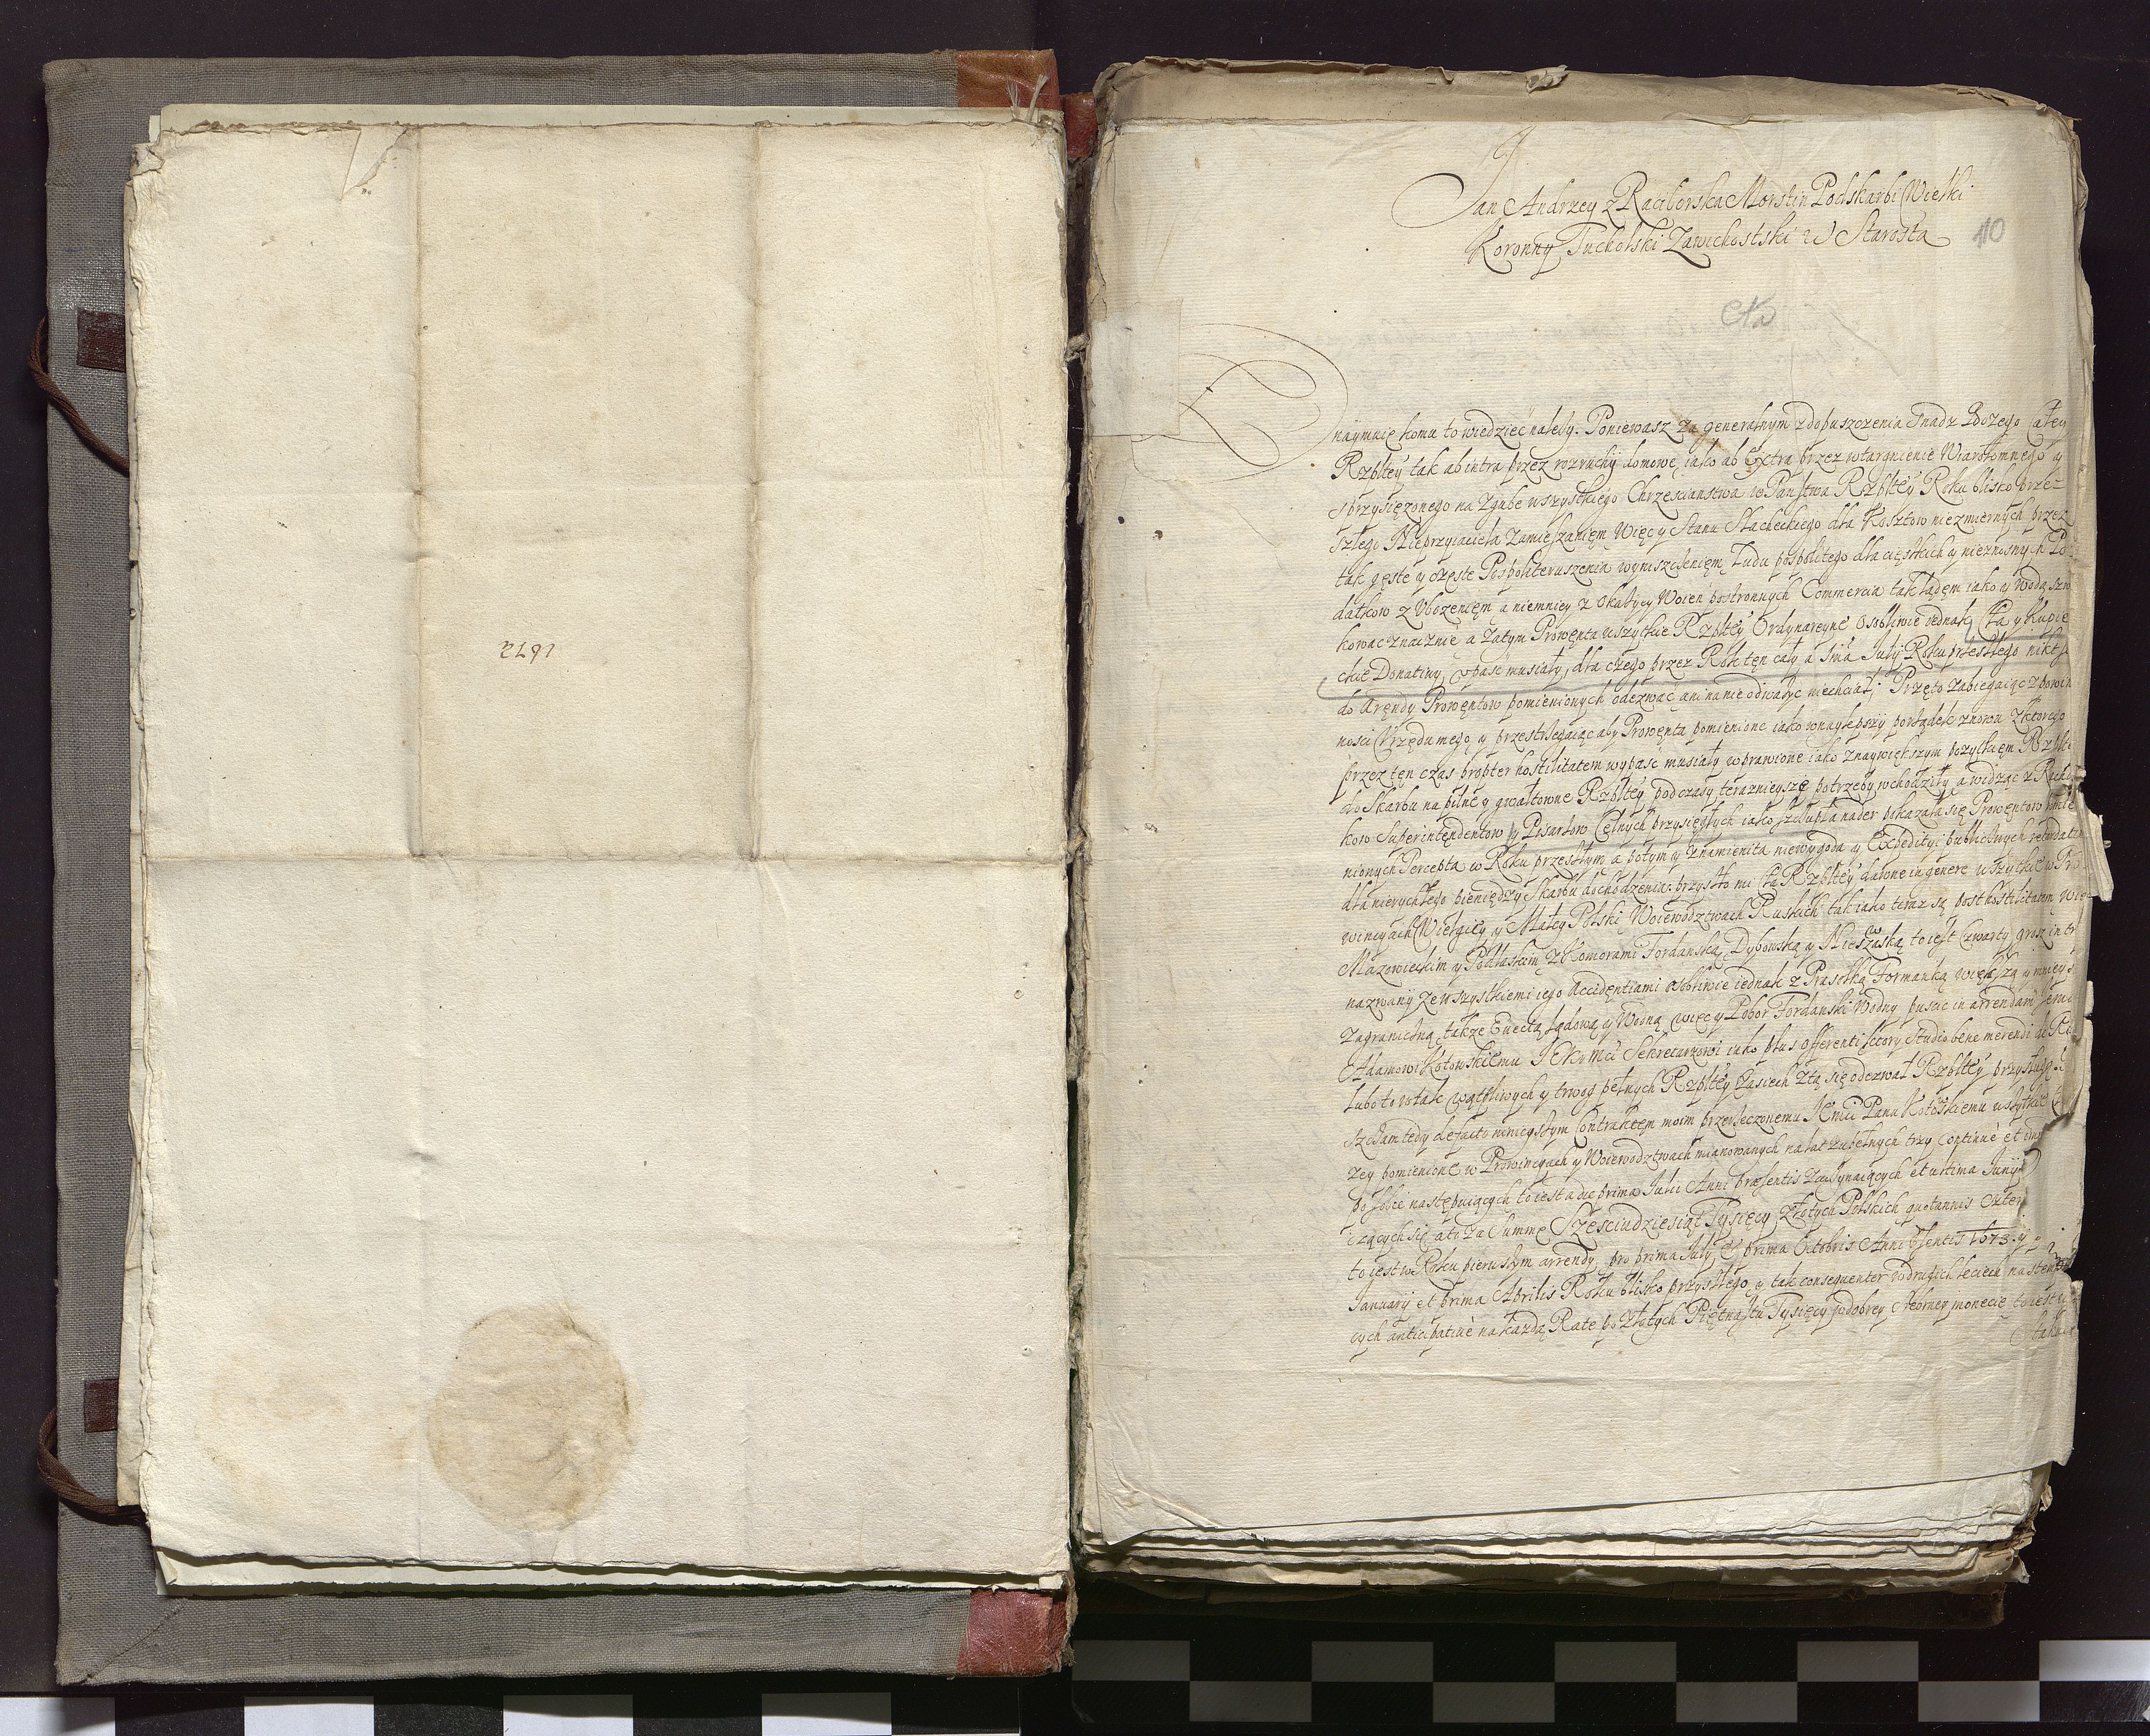 1672
Jan Andrzey z Raciborska Morstin Podskarbi Wielki
Koronny Tucholski Zawichostski &c Starosta
110
Cła
Oznaymuię komu to wiedziec należy. Poniewasz za generalnym zdopuszczenia Bożego Całey
Rzpltey tak ab intra przez rozruchy domowe, iako ab Extra przez wtargnienie Wiarołomnego y
sprzysięzonego na zgubę wszystkiego Chrzescianstwa w Panstwa Rzpltey Roku blisko prze-
szłego Nieprzyiaciela zamieszanięm Więc y Stanu Slacheckiego dla Kosztow niezmiernych przez
tak gęste y częste Pospoliteruszenia wyniszczenięm, Ludu pospolitego dla cięszkich y nieznosnych Po-
datkow z Vbozenięm a niemniey z okazyey Woien postronnych Commercia tak lądęm iako y wodą
kowac znacznie a zatym Prowęnta wszytkie Rzpltey Ordynaryine osobliwie iednak Cła y Kupie
ckie Donatiwy, vpasc musiały, dla czego przez Rok tęn cały a 1ma Julij Roku przeszłego nikt
do Aręndy Prowęntow pomienionych odezwać ani na nie odważyc niechciał; Przęto zabiegaiąc z powin
nosci Vrzędu mego y przestrzegaiąc aby Prowęnta pomienione iako w naylepszy porządek znowu z ktorego
przez tęn czas propter hostilitatem wypasc musiały wprawione iako z naywiększym pozytkięm Rzplte
do Skarbu na pilne y gwałtowne Rzpltey pod czasy teraznieysze potrzeby wchodziły, a widząc z Rachu
kow Superintęndentow y Pisarzow Celnych przysięgłych iako szczupła nader pokazała się Prowęntow
nionych Percepta w Roku przeszłym a potym y znamienita niewygoda y Expedityi publicznych
dla nierychłego pieniędzy Skarbu dochodzenia: przyszło mi Cła Rzpltey in genere wszytkie w Pro
wincyach Wielgiey y Małey Polski, Woiewodztwach Ruskich tak iako teraz są post hostilitatem
Mazowieckim y Podlaskim, z Komorami Fordanską, Dybowską y Nieszawską, to iest Czwarty grosz
nazwany ze wszystkiemi iego Accidentiami osobliwie iednak z Praszką Formanką większą y mnieyszą
zagraniczną, także Evectą lądową y Wodną więc y Pobor Fordanski Wodny puscic in arrendam
Adamowi Kotowskiemu JEKrMci Sekretarzowi iako plus offerenti, ktory Studio bene merendi de
lubo to w tak wątpliwych y trwog pełnych Rzpltey czasiech z tą się odezwał Rzpltey przysługą
tedy de facto ninieyszym Contraktem moim przerzeczonemu JEMci Panu Kotowskiemu wszytkie
zey pomienione w Prowincyach y Woiewodztwach mianowanych na lat zupełnych trzy continuè et
po sobie następuiących to iest a die prima Julii Anni præsentis zaczynaiących et ultima Junij
czących się, a to za Summę Szesciudziesiąt Tysięcy złotych Polskich quotannis
to iest w Roku pierwszym arrendy, pro prima July & prima Octobris Anni psentis 1673.
January et prima Aprilis Roku blisko przyszłego, y tak consequenter w drugich leciech
cych anticipative na każdą Ratę po złotych Piętnastu Tysięcy w dobrey srebrney monecie to iest